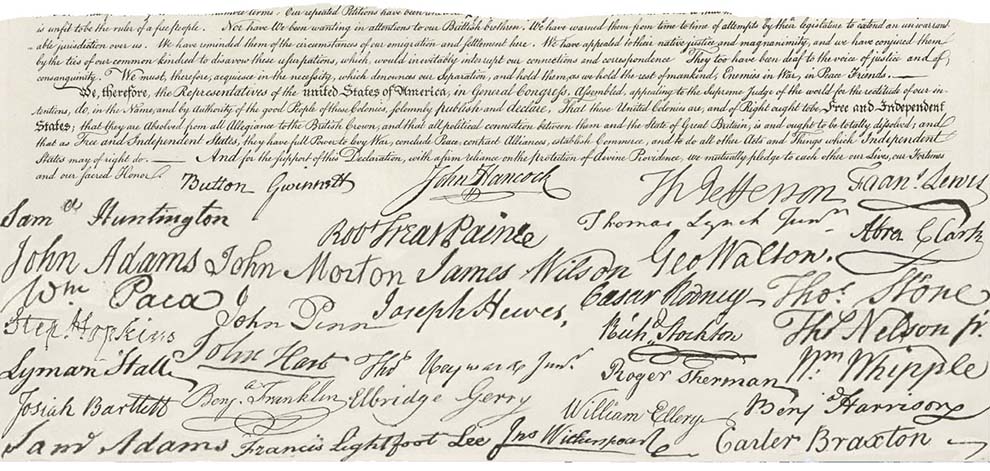 is unfit to be the ruler of a free people. Nor have We been wanting in attentions to our Brittish brethren. We have warned them from time to time of attempts by their legislature to extend an unwarrant
able jurisdiction over us. We have reminded them of the circumstances of our emigration and settlement here. We have appealed to their native justice and magnanimity, and we have conjured them
by the ties of our common kindred to disavow these usurpations, which, would inevitably interrupt our connections and correspondence. They too have been deaf to the voice of justice and of
consanguinity. We must, therefore, acquiesce in the necessity, which denounces our Separation, and hold them, as we hold the rest of mankind, Enemies in War, in Peace Friends.
We, therefore, the Representatives of the united States of America, in General Congress, Assembled, appealing to the Supreme Judge of the world for the rectitude of our in-
tentions, do, in the Name, and by authority of the good People of these Colonies, solemnly publish and declare, That these United Colonies are, and of Right ought to be Free and Independent
States; that they are Absolved from all Allegiance to the British Crown, and that all political connection between them and the State of Great Britain, is and ought to be totally dissolved; and
that as Free and Independent States, they have full Power to levy War, conclude Peace, contract Alliances, establish Commerce, and to do all other Acts and Things which Independent
States may of right do. — And for the support of this Declaration, with a firm reliance on the protection of divine Providence, we mutually pledge to each other our Lives, our Fortunes
and our Sacred Honor.
Button Gwinnett John Hancock Th Jefferson Frans. Lewis
Saml Huntington Robt Treat Paine Thomas Lynch Junr. Abra Clark
John Adams John Morton James Wilson Geo Walton.
Wm Paca John Penn Joseph Hewes, Caesar Rodney Thos. Stone
Step. Hopkins John Hart Richd. Stockton Thos Nelson jr.
Lyman Hall Thos Heyward Junr. Roger Sherman Wm. Whipple
Josiah Bartlett Benj. Franklin Elbridge Gerry William Ellery Benj Harrison
Saml Adams Francis Lightfoot Lee Jno Witherspoon Carter Braxton